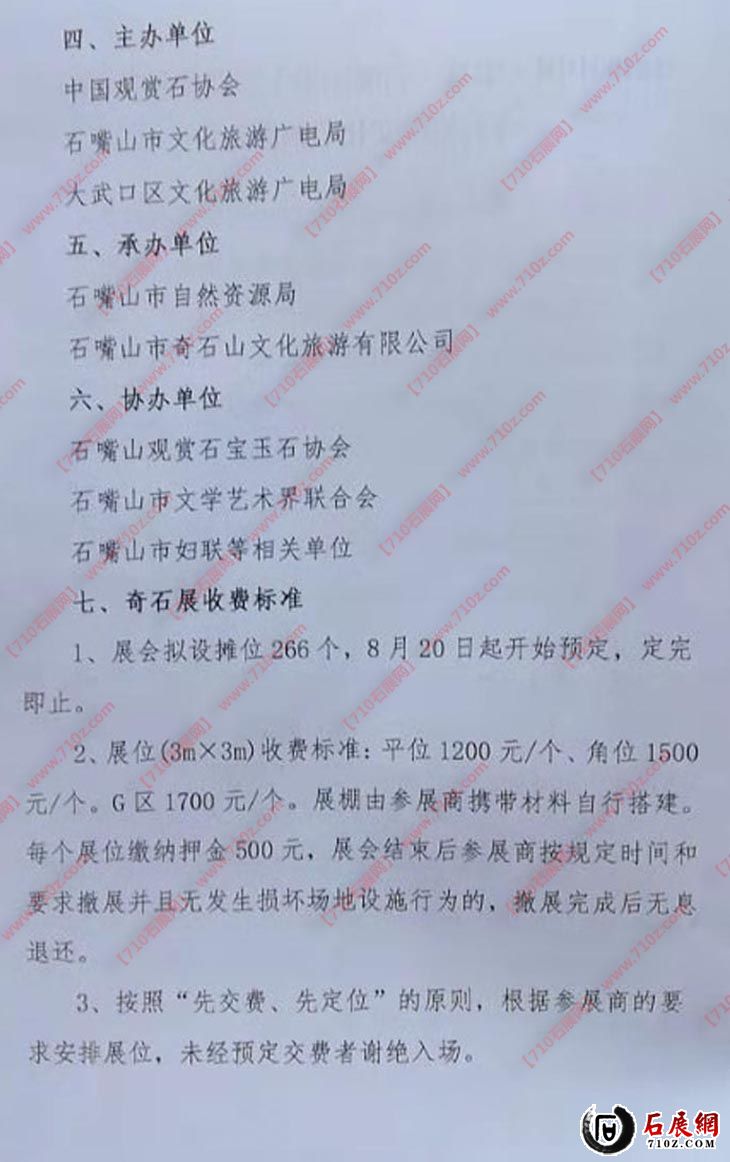 四、主办单位
中国观赏石协会
石嘴山市文化旅游广电局
大武口区文化旅游广电局
五、承办单位
石嘴山市自然资源局
石嘴山市奇石山文化旅游有限公司
六、协办单位
石嘴山观赏石宝玉石协会
石嘴山市文学艺术界联合会
石嘴山市妇联等相关单位
七、奇石展收费标准
1、展会拟设摊位266个，8月20日起开始预定，定完
即止。
2、展位(3m×3m)收费标准：平位1200元/个、角位1500
元/个。G区1700元/个。展棚由参展商携带材料自行搭建。
每个展位缴纳押金500元，展会结束后参展商按规定时间和
要求撤展并且无发生损坏场地设施行为的，撤展完成后无息
退还。
3、按照“先交费、先定位”的原则，根据参展商的要
求安排展位，未经预定交费者谢绝入场。
【710石展网】 www.710z.com
石展網
710Z.COM